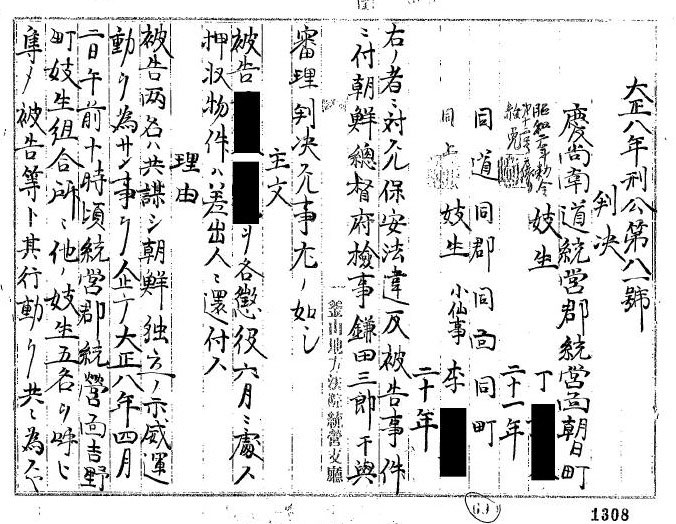 大正八年刑公第八一號
判决
慶尚南道統營郡統營面朝日町
妓生 丁
二十一年
同道同郡同面同町
同上 妓生 小仙事 李
二十年
右ノ者ニ対スル保安法違反被告事件
ニ付朝鮮總督府檢事鎌田三郎干與
審理判决スル事左ノ如シ
主文
被告 ヲ各懲役六月ニ處ス
押収物件ハ差出人ニ還付ス
理由
被告両名ハ共謀シ朝鮮独立ノ示威運
動ヲ為サン事ヲ企テ大正八年四月
二日午前十時頃統営郡統營面吉野
町妓生組合所ニ他ノ妓生五名ヲ呼ヒ
隻ノ被告等ト其行動ヲ共ニ為スヘ
釜山地方法院統營支廳
69
1308